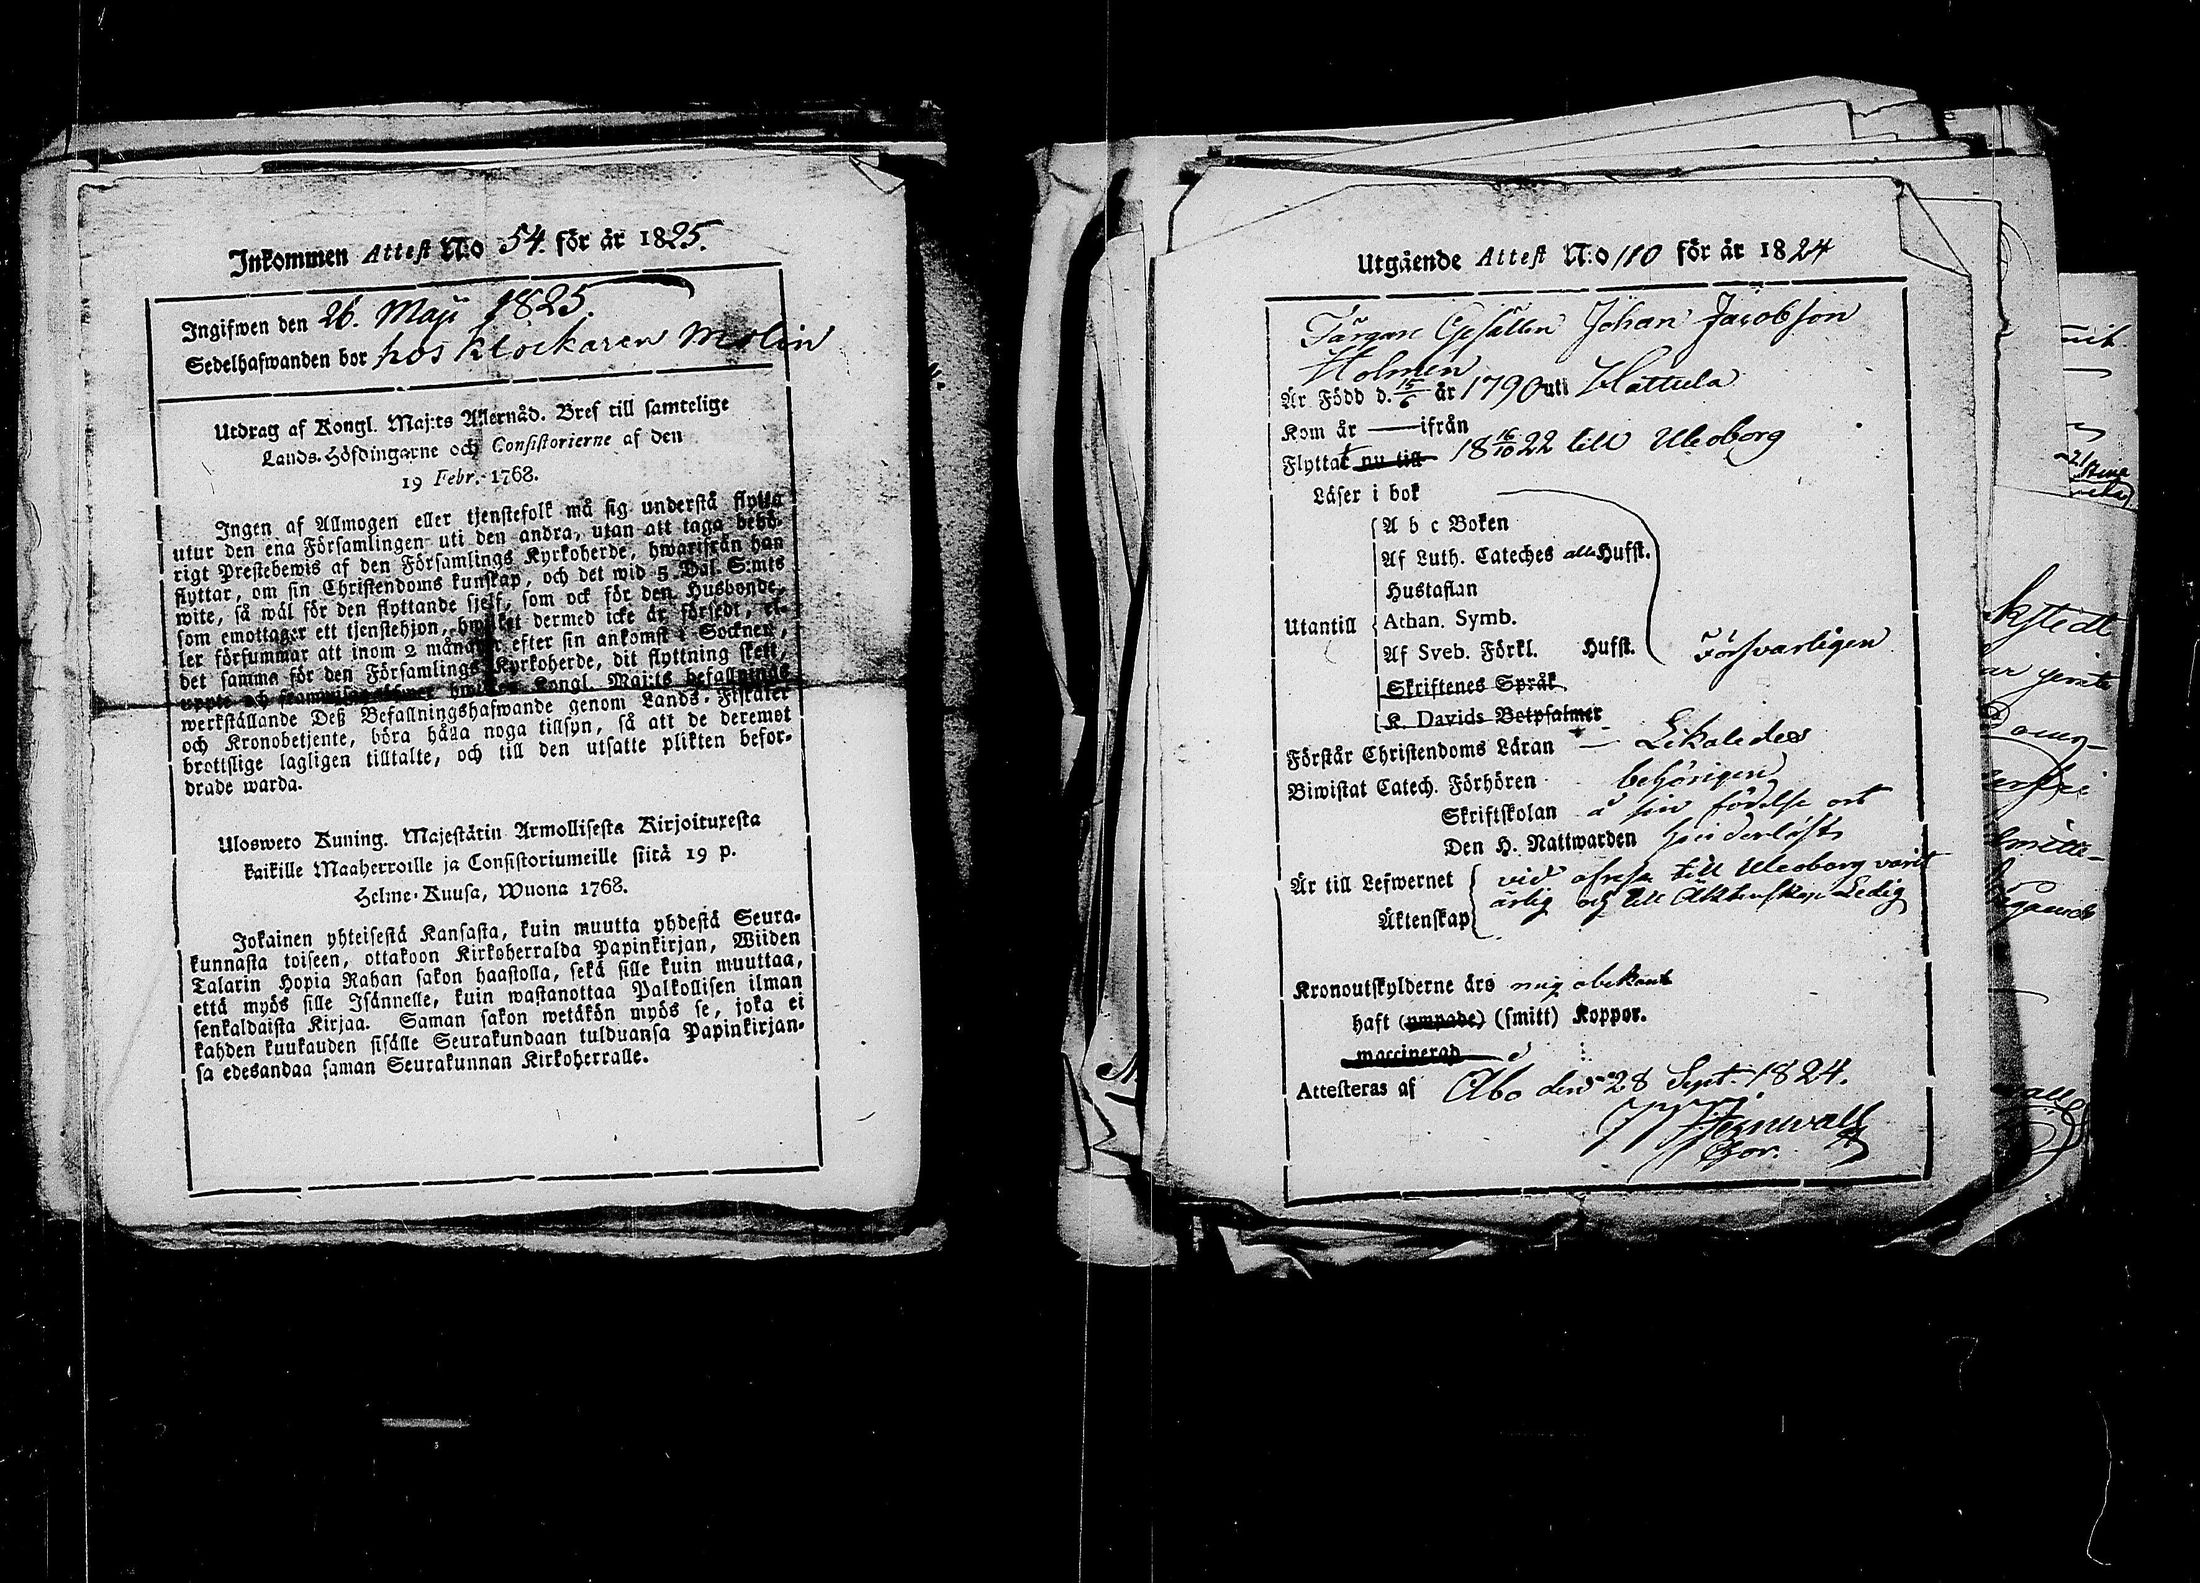 Inkommen Attest N:o 54. för år 1825.
Ingifwen den 26. Maji 1825.
Sedelhafwanden bor hos Klockaren Molin
Utdrag af Kongl. Maj:ts Allernåd. Bref till samtelige
Lands-Höfdingarne och Consistorierne af den
19 Febr. 1768.
Ingen af Allmogen eller tjenstefolk må sig understå flytta
utur den ena Församlingen uti den andra, utan att taga behö-
rigt Prestebewis af den Församlings Kyrkoherde, hwarifrån han
flyttar, om sin Christendoms kunskap, och det wid 5 Dal. S:mts
wite, så wäl för den flyttande sjelf, som ock för den Husbonde,
som emottager ett tjenstehjon, hwilket dermed icke är försedt, el-
ler försummar att inom 2 månader efter sin ankomst i Socknen,
det samma för den Församlings Kyrkoherde, dit flyttning skett,
uppte och Kongl. Maj:ts befallnings
werkställande Deß Befallningshafwande genom Lands-Fiskaler
och Kronobetjente, böra hålla noga tillsyn, så att de deremot
brottslige lagligen tilltalte, och till den utsatte plikten befor-
drade warda.
Ulosweto Kuning. Majestätin Armollisesta Kirjoituxesta
kaikille Maaherroille ja Consistoriumeille siitä 19 p.
Helme-Kuusa, Wuona 1768.
Jokainen yhteisestä Kansasta, kuin muutta yhdestä Seura-
kunnasta toiseen, ottakoon Kirkoherralda Papinkirjan, Wiiden
Talarin Hopia Rahan sakon haastolla, sekä sille kuin muuttaa,
että myös sille Isännelle, kuin wastanottaa Palkollisen ilman
senkaldaista Kirjaa. Saman sakon wetäkön myös se, joka ei
kahden kuukauden sisälle Seurakundaan tulduansa Papinkirjan-
sa edesandaa saman Seurakunnan Kirkoherralle.
Utgående Attest N:o 110 för år 1824
Färgare Gesällen Johan Jacobson
Holmen
Är Född d. 15/6 år 1790 uti Hattula
Kom år — ifrån
Flyttat nu till 18 16/10 22 till Uleoborg
Läser i bok
A b c Boken
Af Luth. Cateches alla Hufst.
Hustaflan
Utantill Athan. Symb.
Af Sveb. Förkl. Hufst. Försvarligen
Skriftenes Språk
K. Davids Botpsalmer
Förstår Christendoms Läran — Likaledes
Biwistat Catech. Förhören behörigen
Skriftskolan å sin födelse ort
Den H. Nattwarden hinderlöst
Är till Lefwernet vid afresa till Uleoborg varit
ärlig och till Äktenskap Ledig
Äktenskap
Kronoutskylderne äro mig obekant
haft (ympade) (smitt) Koppor.
waccinerad
Attesteras af Åbo den 28 Sept. 1824.